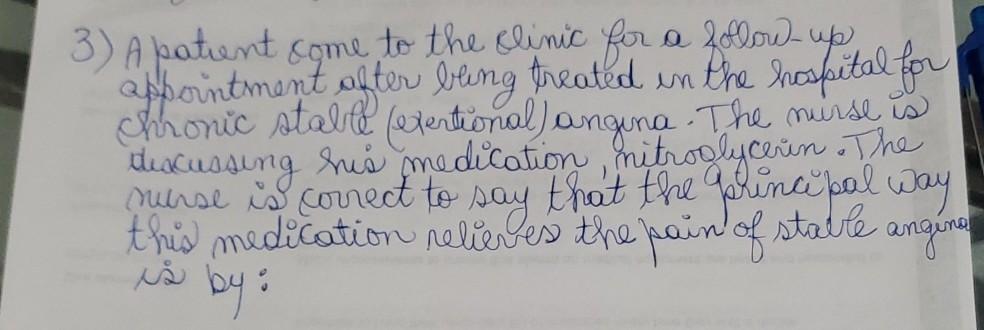 3) A patient come to the clinic for a follow-up
appointment after being treated in the hospital for
chronic stable (exertional) angina. The nurse is
discussing his medication, nitroglycerin. The
nurse is correct to say that the principal way
this medication relieves the pain of stable angina
is by: